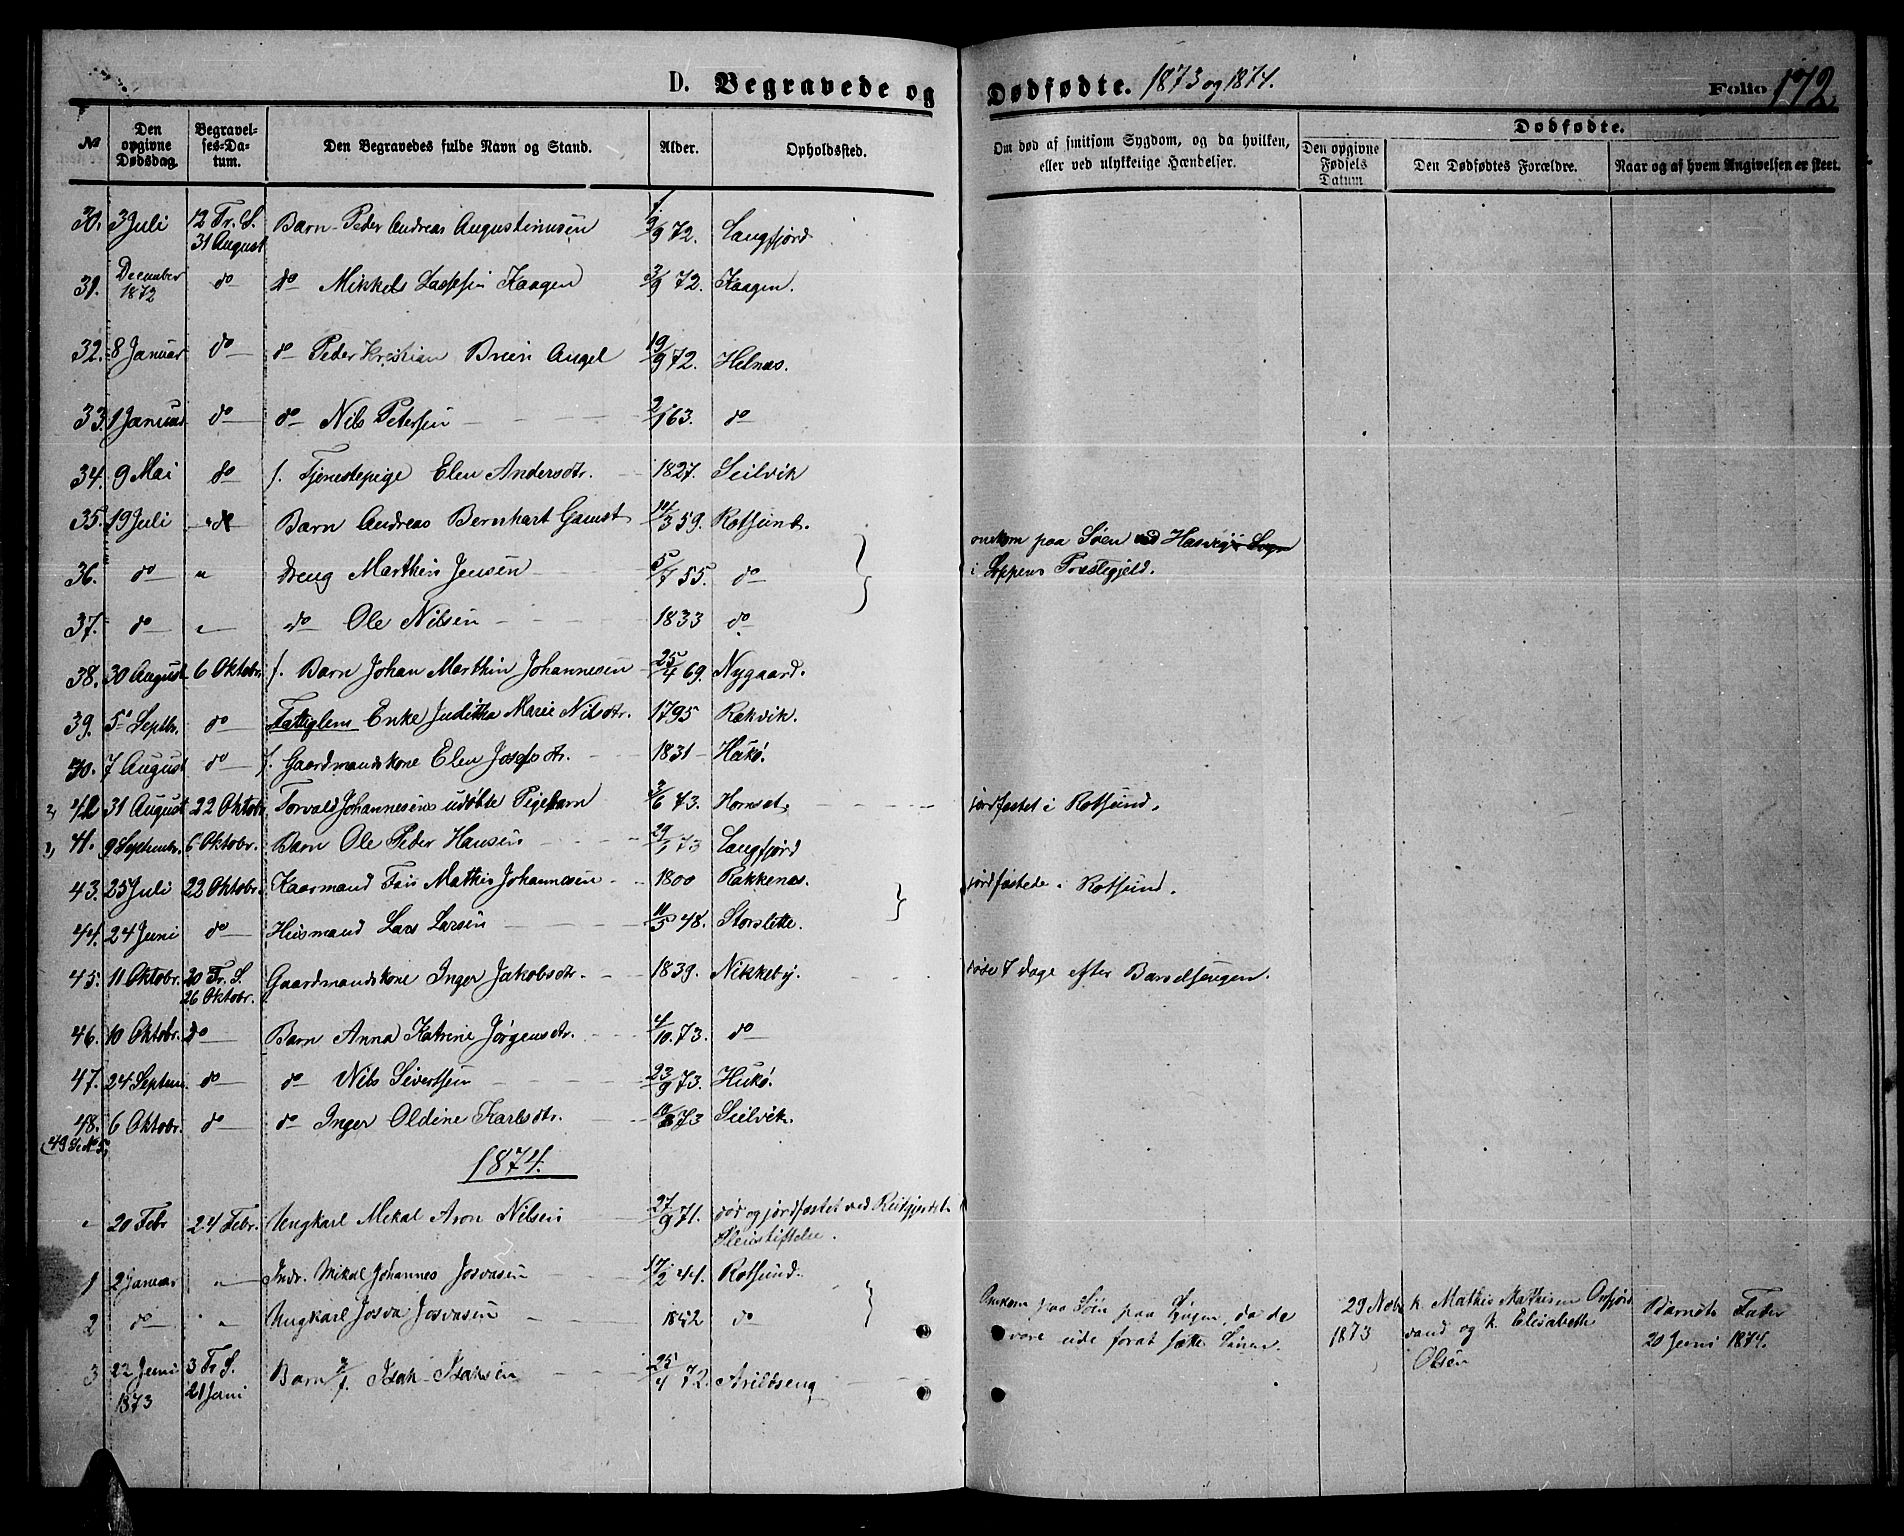 D. Begravede og Dødfødte. 1873 og 1874. Folio 172
№ Den opgivne Dødsdag. Begravelses-Datum. Den Begravedes fulde Navn og Stand. Alder. Opholdssted. Om død af smitsom Sygdom, og da hvilken, eller ved ulykkelige Hændelser. Dødfødte. Den opgivne Fødsels Datum Den Dødfødtes Forældre. Naar og af hvem Angivelsen er skeet.
30. 3 Juli 12 Tr. S. 31 August Barn Peder Andreas Augustinusen 9/9 72. Langfjord
31. December 1872 do do Mikkel Lassesen Kaagen 3/9 72. Kaagen.
32. 8 Januar do do Peder Kristian Angel 19/9 72. Helnæs.
33. 1 Januar do do Nils Petersen 2/1 63. do
34. 9 Mai do f. Tjenestepige Elen Andersdtr. 1827. Seilvik
35. 19 Juli Barn Andreas Bernhart Gamst 14/3 59. Rotsund. omkom paa Søen ved Hasvig Sogn
36. do " Dreng Marthin Jensen 5/7 55. do i Loppens Præstegjeld.
37. do " do Ole Nilsen 1833 do
38. 30 August 6 Oktobr. f. Barn Johan Marthin Johannesen 25/4 69. Nygaard.
39. 5 Septbr. do Fattiglem Enke Juditha Marie Nilsdtr. 1795 Rakvik.
40. 7 August do f. Gaardmandskone Elen Josefsdtr. 1831 Hukø.
2) 42 31 August 22 Oktobr. Torvald Johannesens udøbte Pigebarn 3/6 73. Hornset jordfæstet i Rotsund.
1) 41. 9 Septembr. 6 Oktobr. Barn Ole Peder Hansen 29/1 73 Langfjord
43. 25 Juli 22 Oktobr. Kaarmand Mathis Johannesen 1800 Rakkenæs. jordfæstede i Rotsund.
44. 24 Juni do Husmand Lars Larsen 11/5 48. Storslette.
45. 11 Oktobr. 20 Tr. S. 26 Oktobr. Gaardmandskone Inger Jakobsdtr. 1839. Nikkeby. døde 7 dage efter Barselsengen.
46. 10 Oktobr. do Barn Anna Katrine Jørgensdtr. 4/10. 73. do
47. 24 Septem. do do Nils Sivertsen 23/9 73. Hukø.
48. 6 Oktobr. do do Inger Oldine Karlsdtr. 73 Seilvik.
(49 Se № 5)
1874.
" 20 Febr 24 Febr. Ungkarl Mekal Aron Nilsen 27/9 71. død og jordfæstet ved Reitgjerdet Pleiestiftelse.
1 2 Januar " Indr. Mikal Johannes Josvasen 17/2 44. Rotsund.
2 do " Ungkarl Josva Josvasen 1852 do Omkom paa Søen paa Lyngen, da de vare ude forat sætte Liner. 29 Nobr 1873 k. Mathis Mathisen Oxfjordvand og k. Elisabeth Olsen Barnets Fader 20 Juni 1874.
3 22 Juni 1873 3 Tr. S. 21 Juni Barn Isak Isaksen 25/4 72. Arildseng